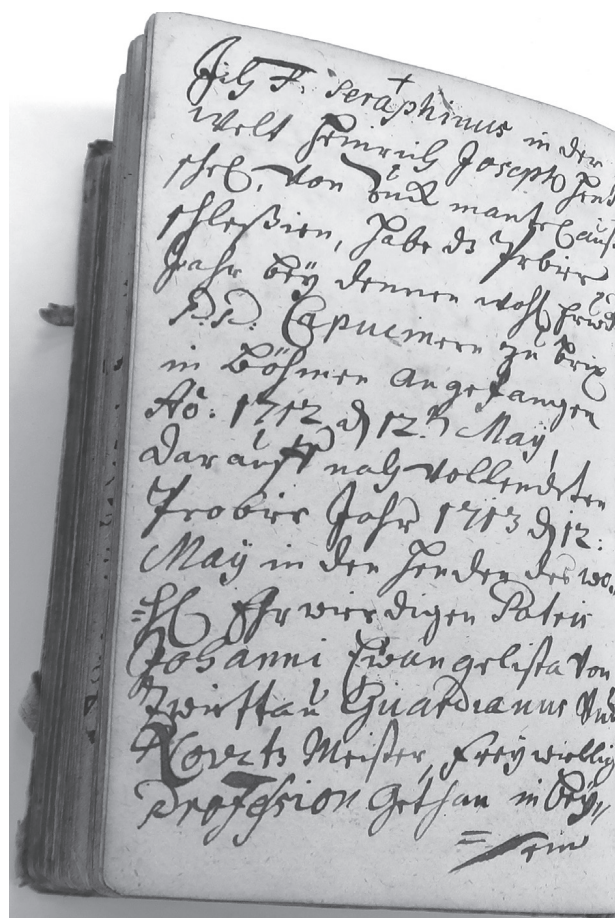 Ich F. Seraphinus in der
Welt Heinrich Joseph Hent
schel, von mantel auß
schleßien, habe dz Probier
Jahr beÿ dennen wohl
P.P. Capucinern zu Brix
in Böhmen angefangen
Aõ: 1712 d 12.t May,
darauff nach vollendeten
Probier Jahr 1713 d 12:
Maÿ in den Henden des wo
=hl Ehrwierdigen Patris
Johanni Ewangelista von
Zwittau Guardianus Und
Novitz Meister, freÿwillig
Profession gethan in beÿ
=sein